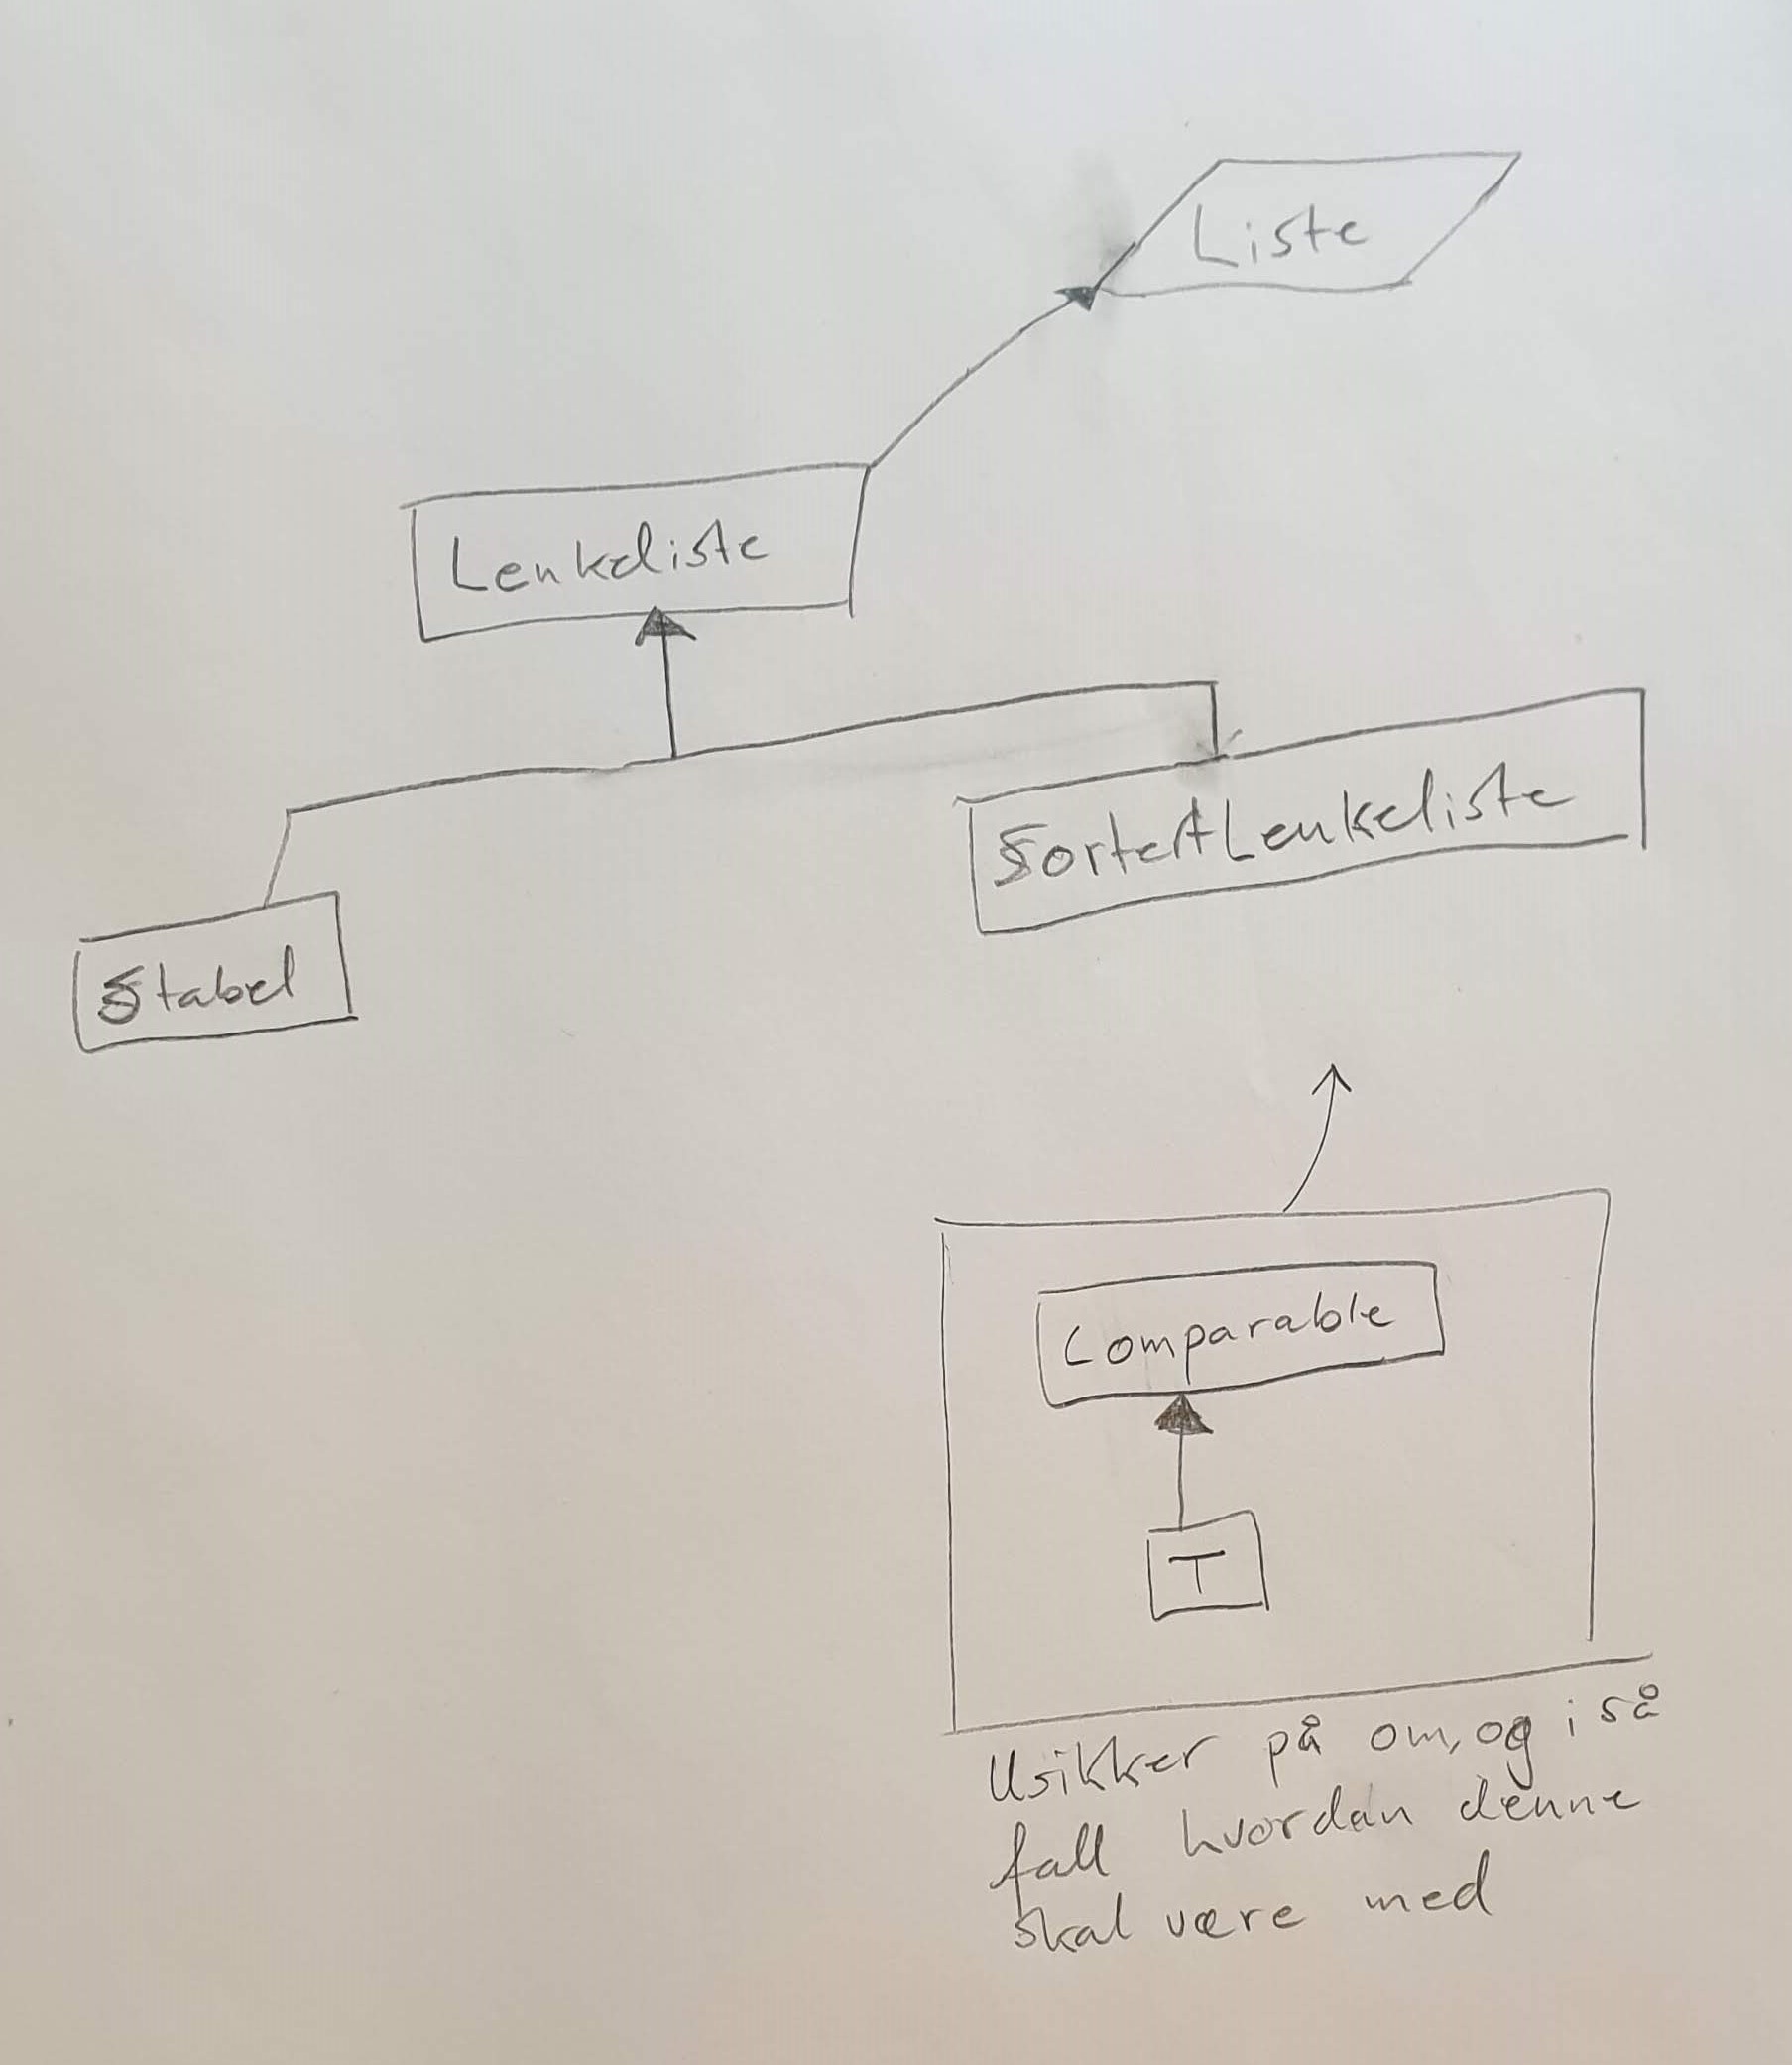 Liste
Lenkeliste
SortertLenkeliste
Stabel
Comparable
T
Usikker på om, og i så
fall hvordan denne
skal være med